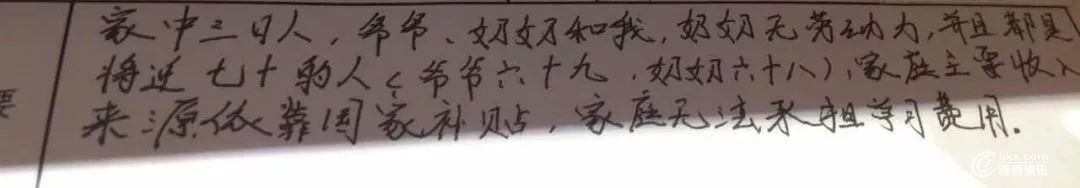 家中三口人，爷爷、奶奶和我，奶奶无劳动力，并且都是
将近七十的人（爷爷六十九，奶奶六十八），家庭主要收入
来源依靠国家补贴，家庭无法承担学习费用。
要